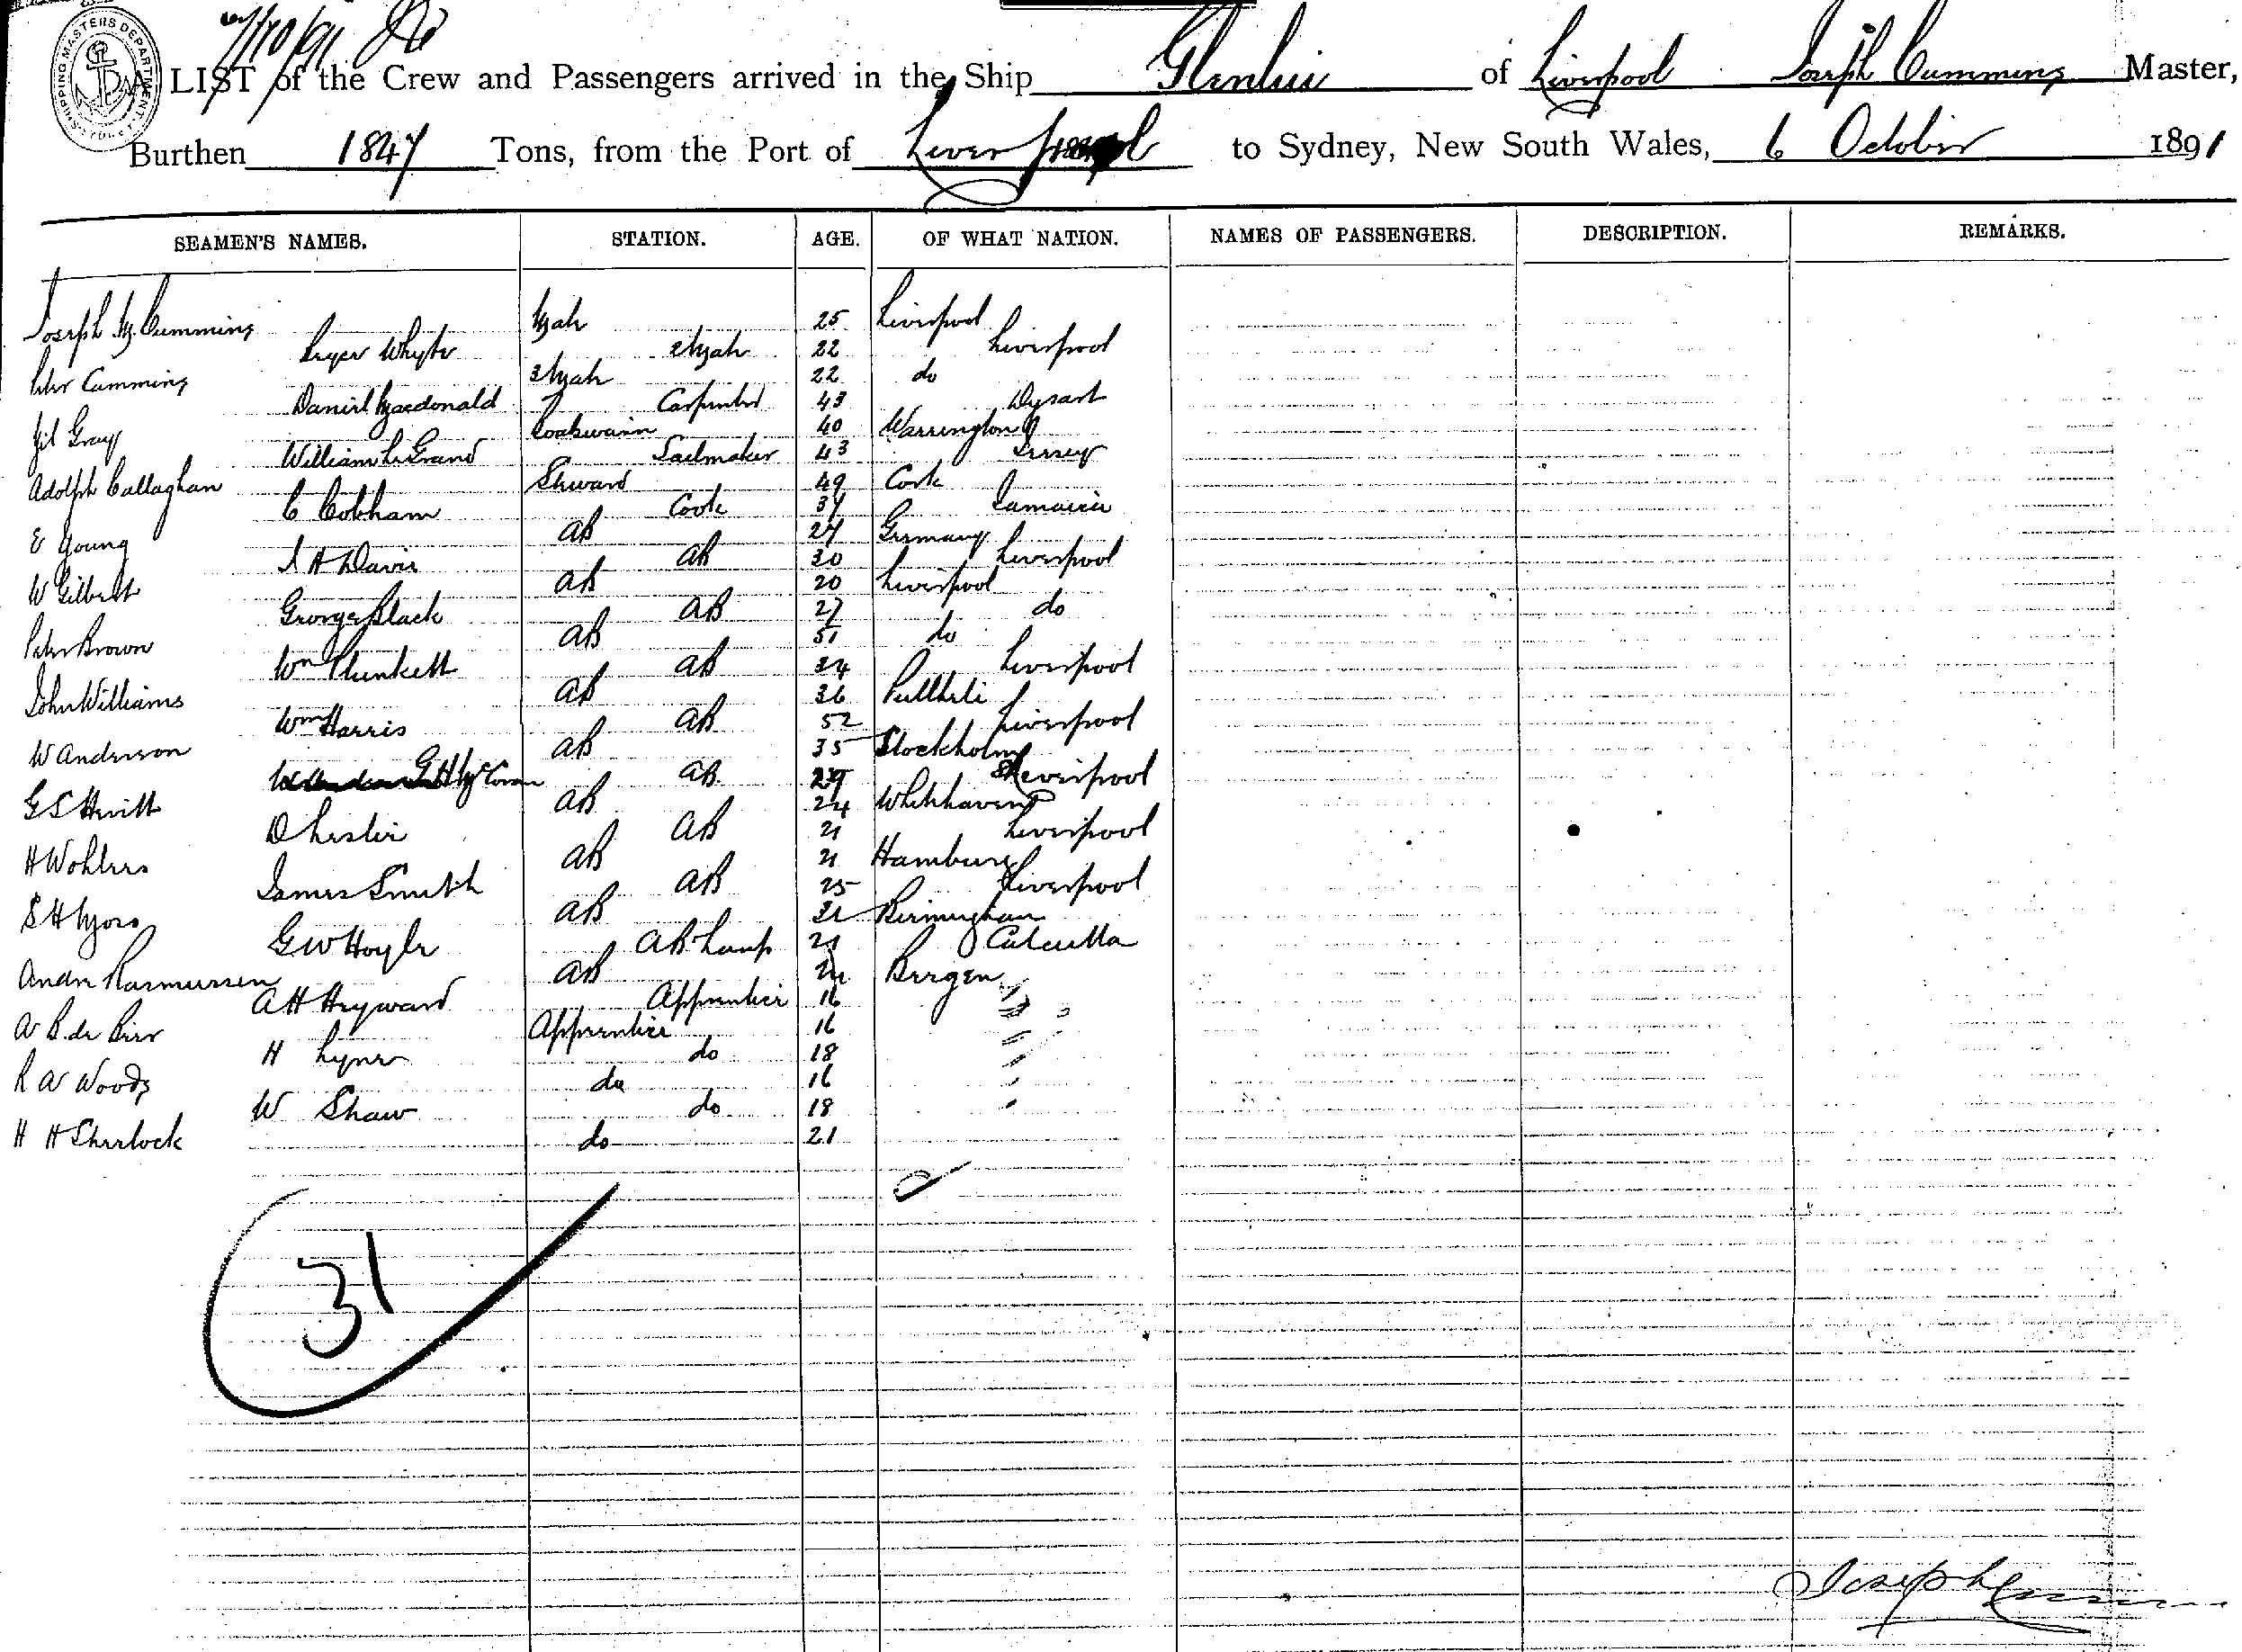 SHIPPING MASTERS DEPARTMENT
7/10/91
A LIST of the Crew and Passengers arrived in the Ship of Liverpool Joseph Cumming Master,
Burthen 1847 Tons, from the Port of Liverpool to Sydney, New South Wales, 6 October 1891
SEAMEN'S NAMES. STATION. AGE. OF WHAT NATION. NAMES OF PASSENGERS. DESCRIPTION. REMARKS.
Joseph M. Cumming Mate 25 Liverpool
Whyte 2 Mate 22 Liverpool
Peter Cumming 3 Mate 22 do
Daniel Macdonald Carpenter 43 Dysart
Gray Boatswain 40 Warrington
William Le Grand Sailmaker 43 Jersey
Adolph Callaghan Steward 49 Cork
C Cobham Cook 34 Jamaica
E Young AB 27 Germany
A H Davis AB 30 Liverpool
W Gilbert AB 20 Liverpool
George Black AB 27 do
Peter Brown AB 51 do
Wm Plunkett AB 34 Liverpool
John Williams AB 36 Pullheli
Wm Harris AB 52 Liverpool
W Anderson AB 35 Stockholm
AB Liverpool
G S Hewitt AB 24 Whitehaven
D Lester AB 21 Liverpool
H Wohlers AB 21 Hamburg
James Smith AB 25 Liverpool
S H Myors AB Birmingham
G W Hoyle AB Lamp 21 Calcutta
Andr Rasmussen AB Bergen
A H Heyward Apprentice 16
A B de Bier Apprentice 16
H Lyne do 18
R W Woods do 16
W Shaw do 18
H H Sherlock do 21
31
Joseph Cumming